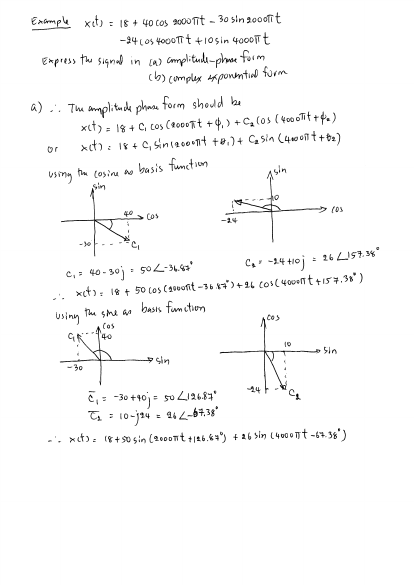 Example x(t) = 18 + 40 cos 2000πt - 30 sin 2000πt
-24 cos 4000πt + 10 sin 4000πt
Express the signal in (a) amplitude-phase form
(b) complex exponential form
a) ∴ The amplitude phase form should be
x(t) = 18 + C₁ cos (2000πt + φ₁) + C₂ cos (4000πt + φ₂)
or x(t) = 18 + C₁ sin (2000πt + θ₁) + C₂ sin (4000πt + θ₂)
using the cosine as basis function
sin
sin
40 cos
10
-24 cos
-30 C₁
C₁ = 40 - 30j = 50∠-36.87°
C₂ = -24 + 10j = 26∠157.38°
∴ x(t) = 18 + 50 cos (2000πt - 36.87°) + 26 cos (4000πt + 157.38°)
using the sine as basis function
cos
cos
C₁ 40
10
-30 sin
sin
-24 C₂
C̅₁ = -30 + 40j = 50∠126.87°
C̅₂ = 10 - j24 = 26∠-67.38°
∴ x(t) = 18 + 50 sin (2000πt + 126.87°) + 26 sin (4000πt - 67.38°)